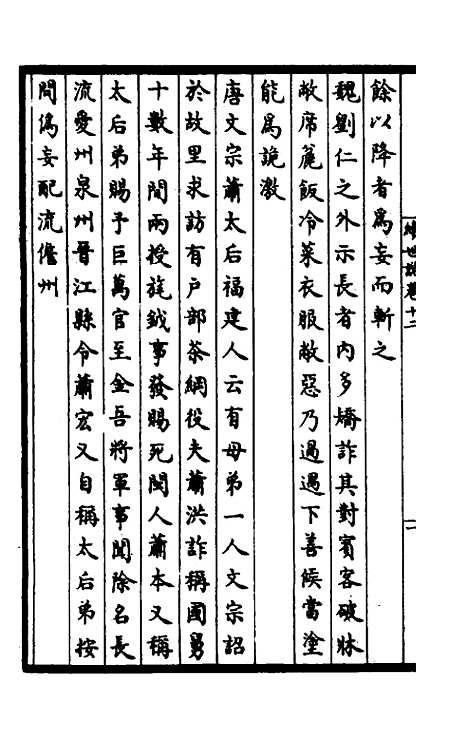 餘以降者為妄而斬之
魏劉仁之外示長者内多矯詐其對賓客破牀
敝席麄飯冷菜衣服敝惡乃過逼下善候當塗
能為詭激
唐文宗蕭太后福建人云有母弟一人文宗詔
於故里求訪有户部茶綱役夫蕭洪詐稱國舅
十數年間兩授旄鉞事發賜死閩人蕭本又稱
太后弟賜予巨萬官至金吾將軍事聞除名長
流愛州泉州晉江縣令蕭宏又自稱太后弟按
問偽妄配流儋州
續世説卷十二
一